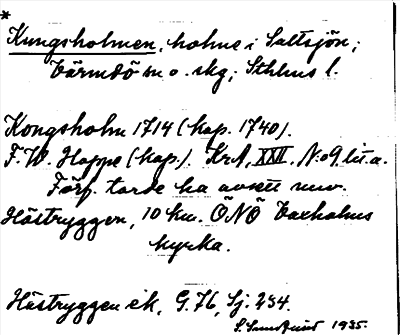 *
Kungsholmen, holme i Saltsjön;
Värmdö sn o. skg; Sthlms l.
Kongsholm 1714 (kop. 1740).
F. W. Hoppe (kop.). KrA, XXII. N:o 9. lit. a.
Förf. torde ha avsett nuv.
Hästryggen, 10 km. ÖNÖ Vaxholms
kyrka.
Hästryggen ek, G. 76, Sj. 234.
1935.